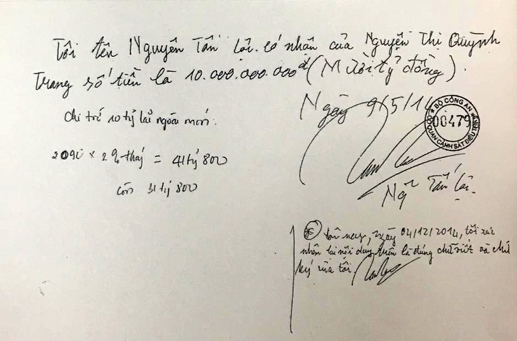 Tôi tên Nguyễn Tấn Lợi. có nhận của Nguyễn Thị Quỳnh
Trang số tiền là 10.000.000.000đ (Mười tỷ đồng).
Ngày 9/5/14
Chi trả 10 tỷ lãi ngoài
2090 x 2% tháng = 41 tỷ 800
còn 31 tỷ 800
BỘ CÔNG AN
00479
CƠ QUAN CẢNH SÁT ĐIỀU
Ng Tấn Lợi
Hôm nay, ngày 04/12/2014, tôi xác
nhận lại nội dung trên là đúng chữ viết và chữ
ký của tôi